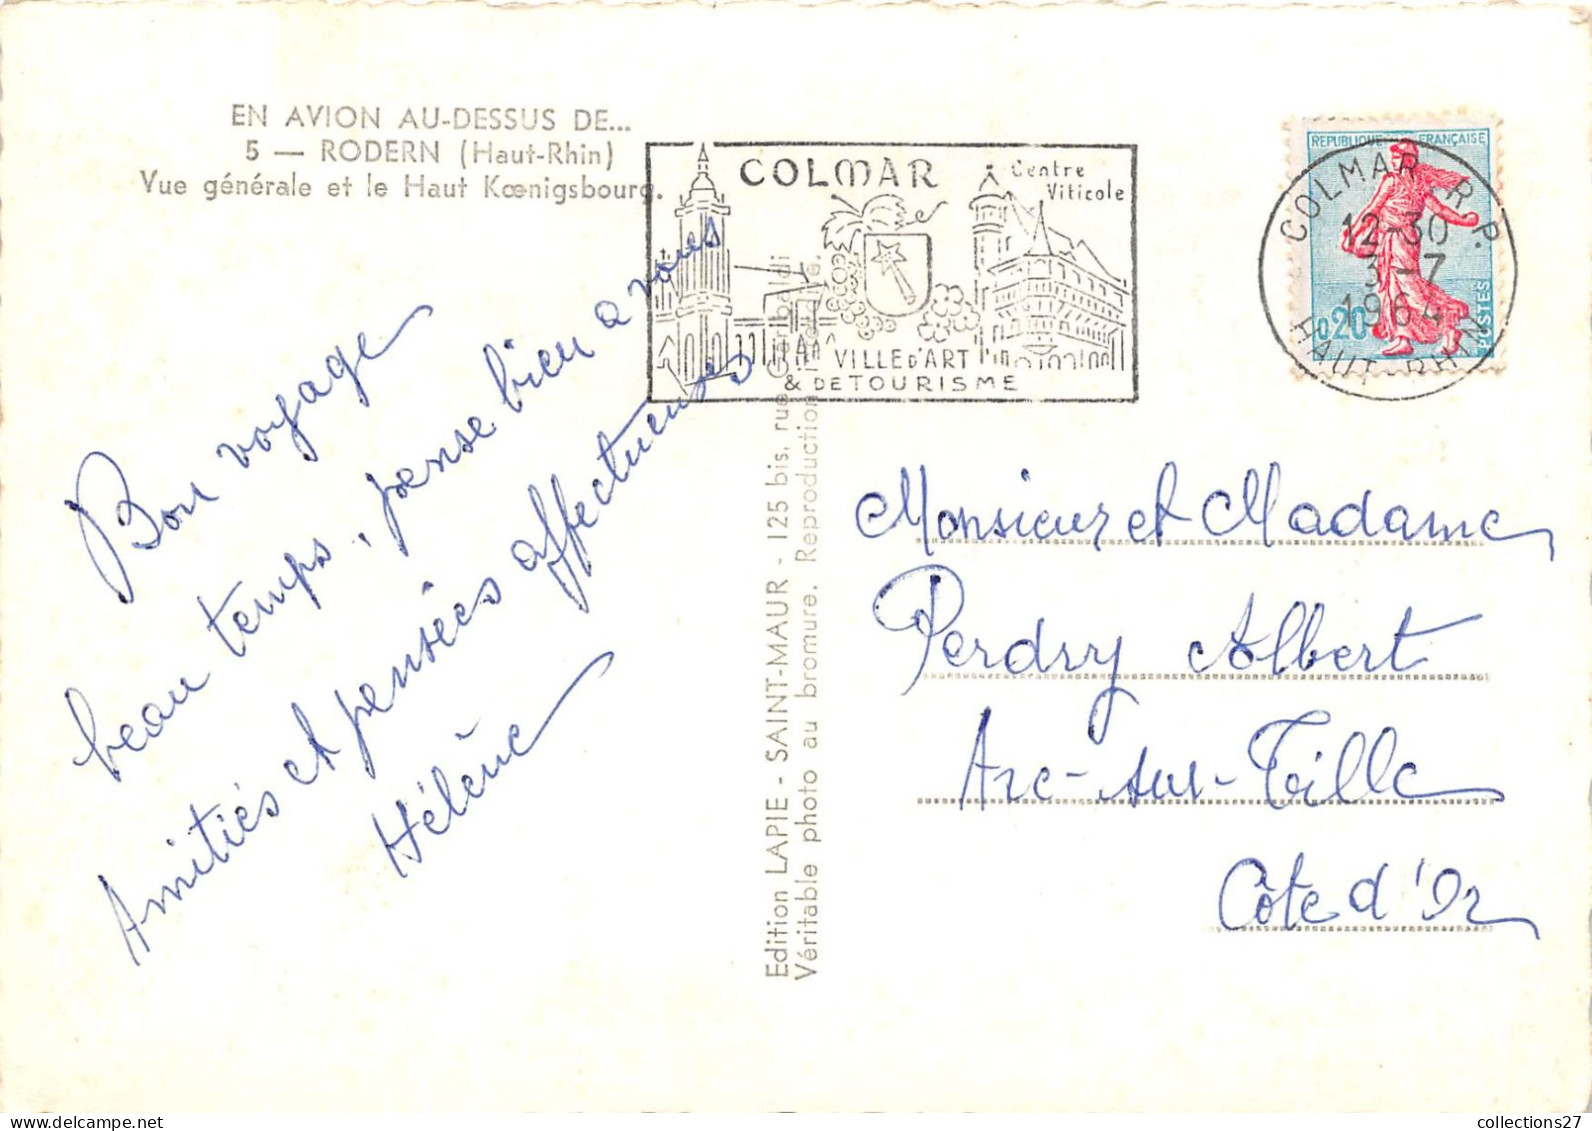 EN AVION AU-DESSUS DE...
5 — RODERN (Haut-Rhin)
Vue générale et le Haut Kœnigsbourg.
COLMAR
Centre
Viticole
VILLE D'ART
& DE TOURISME
REPUBLIQUE FRANÇAISE
0,20
POSTES
COLMAR R.P.
12-30
3-7
1964
HAUT-RHIN
Bon voyage
beau temps, pense bien a vous
Amitiés et pensées affectueuses
Hélène
Edition LAPIE - SAINT-MAUR - 125 bis, rue Garibaldi
Véritable photo au bromure. Reproduction interdite.
Monsieur et Madame
Perdry Albert
Arc-sur-Tille
Côte d'Or
collections27